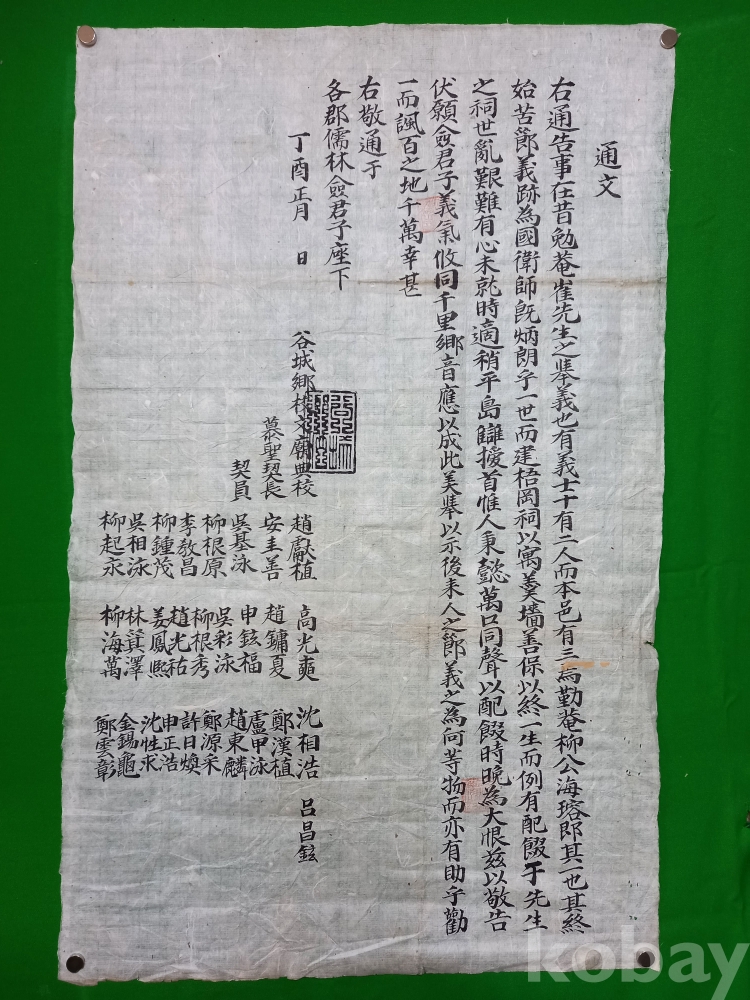 通文
右通告事在昔勉菴崔先生之擧義也有義士十有二人而本邑有三焉勤菴柳公海瑢即其一也其終
始苦節義跡為國衛師旣炳朗乎一世而建梧岡祠以寓羹墻善保以終一生而例有配餟于先生
之祠世亂艱難有心未就時適稍平島讎擾首惟人秉懿萬口同聲以配餟時晚為大恨玆以敬告
伏願僉君子義氣攸同千里鄕音應以成此美擧以示後來人之節義之為何等物而亦有助乎勸
一而諷百之地千萬幸甚
右敬通于
各郡儒林僉君子座下
丁酉正月 日
谷城鄕校文廟典校 趙獻植 高光奭 沈相浩 呂昌鉉
慕聖契長 安圭善 趙鏞夏 鄭漢植
契員 吳基泳 申鉉福 盧甲泳
柳根原 吳彩泳 趙東麟
李敎昌 柳根秀 鄭源采
柳鍾茂 趙光祐 許日煥
吳相泳 姜鳳熙 申正浩
柳起永 林鎭澤 沈性求
柳海萬 金錫龜
鄭雲彰
kobay